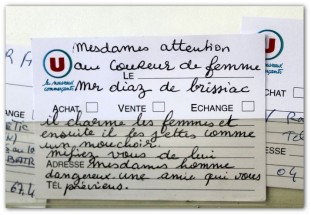 U
les nouveaux
commerçants
Mesdames attention
au coureur de femme
LE
Mr diaz de brissiac
ACHAT VENTE ECHANGE
il charme les femmes et
ensuite il les jettes comme
un mouchoir.
mefiez vous de lui
ADRESSE mesdames homme
dangereux une amie qui vous
TEL préviens.
U
les nouveaux
commerçants
67.4
04